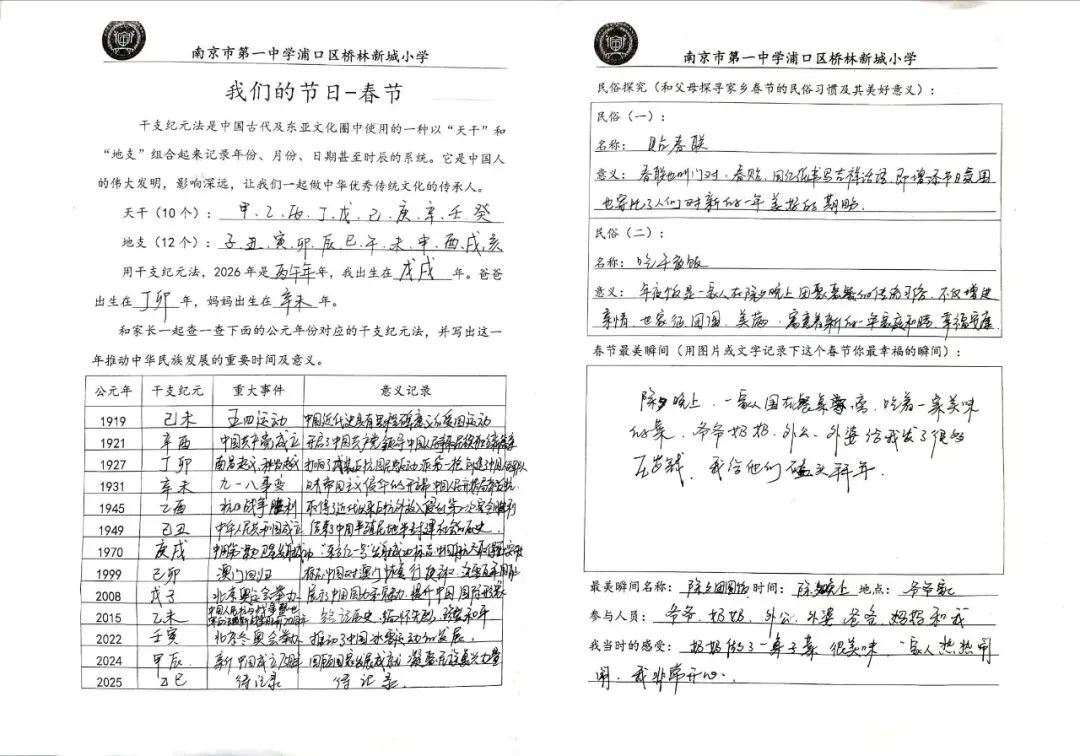 南京市第一中学浦口区桥林新城小学
我们的节日-春节
干支纪元法是中国古代及东亚文化圈中使用的一种以“天干”和
“地支”组合起来记录年份、月份、日期甚至时辰的系统。它是中国人
的伟大发明，影响深远，让我们一起做中华优秀传统文化的传承人。
天干（10 个）： 甲、乙、丙、丁、戊、己、庚、辛、壬、癸
地支（12 个）： 子、丑、寅、卯、辰、巳、午、未、申、酉、戌、亥
用干支纪元法，2026 年是 丙午年 年，我出生在 戊戌 年。爸爸
出生在 丁卯 年，妈妈出生在 辛未 年。
和家长一起查一查下面的公元年份对应的干支纪元法，并写出这一
年推动中华民族发展的重要时间及意义。
公元年 干支纪元 重大事件 意义记录
1919 己未 五四运动 中国近代史具有里程碑意义的爱国运动
1921 辛酉 中国共产党成立
1927 丁卯 南昌起义、秋收起义
1931 辛未 九一八事变
1945 乙酉 抗日战争胜利
1949 己丑 中华人民共和国成立 结束了中国半殖民地半封建社会的历史
1970 庚戌
1999 己卯 澳门回归
2008 戊子 北京奥运会举办
2015 乙未 铭记历史、缅怀先烈、珍爱和平
2022 壬寅 北京冬奥会举办 推动了中国冰雪运动的发展
2024 甲辰
2025 乙巳 待记录 待记录
南京市第一中学浦口区桥林新城小学
民俗探究（和父母探寻家乡春节的民俗习惯及其美好意义）：
民俗（一）：
名称： 贴春联
意义： 春联也叫门对、春贴、用红纸书写吉祥话语，即增添节日氛围
也寄托了人们对新的一年美好的期盼。
民俗（二）：
名称： 吃年夜饭
意义： 年夜饭是一家人在除夕晚上团聚聚餐的传统习俗、不仅增进
亲情、也象征团圆、美满、寓意着新的一年家庭和睦、幸福安康
春节最美瞬间（用图片或文字记录下这个春节你最幸福的瞬间）：
除夕晚上，一家人围在餐桌旁，吃着一桌美味
的菜，爷爷奶奶、外公、外婆给我发了很多
压岁钱，我给他们磕头拜年。
最美瞬间名称： 除夕团圆饭 时间： 除夕晚上 地点： 爷爷家
参与人员： 爷爷、奶奶、外公、外婆、爸爸、妈妈和我
我当时的感受： 奶奶做了一桌子菜 很美味 一家人热热闹
闹，我非常开心。